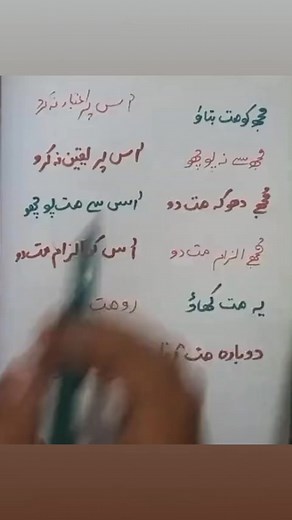 مجھ کو مت بتاؤ
مجھ سے نہ پوچھو
مجھے دھوکہ مت دو
مجھے الزام مت دو
یہ مت کھاؤ
دوبارہ مت
اس پر اعتبار نہ کرو
اس پر یقین نہ کرو
اس سے مت پوچھو
اس کو الزام مت دو
رو مت